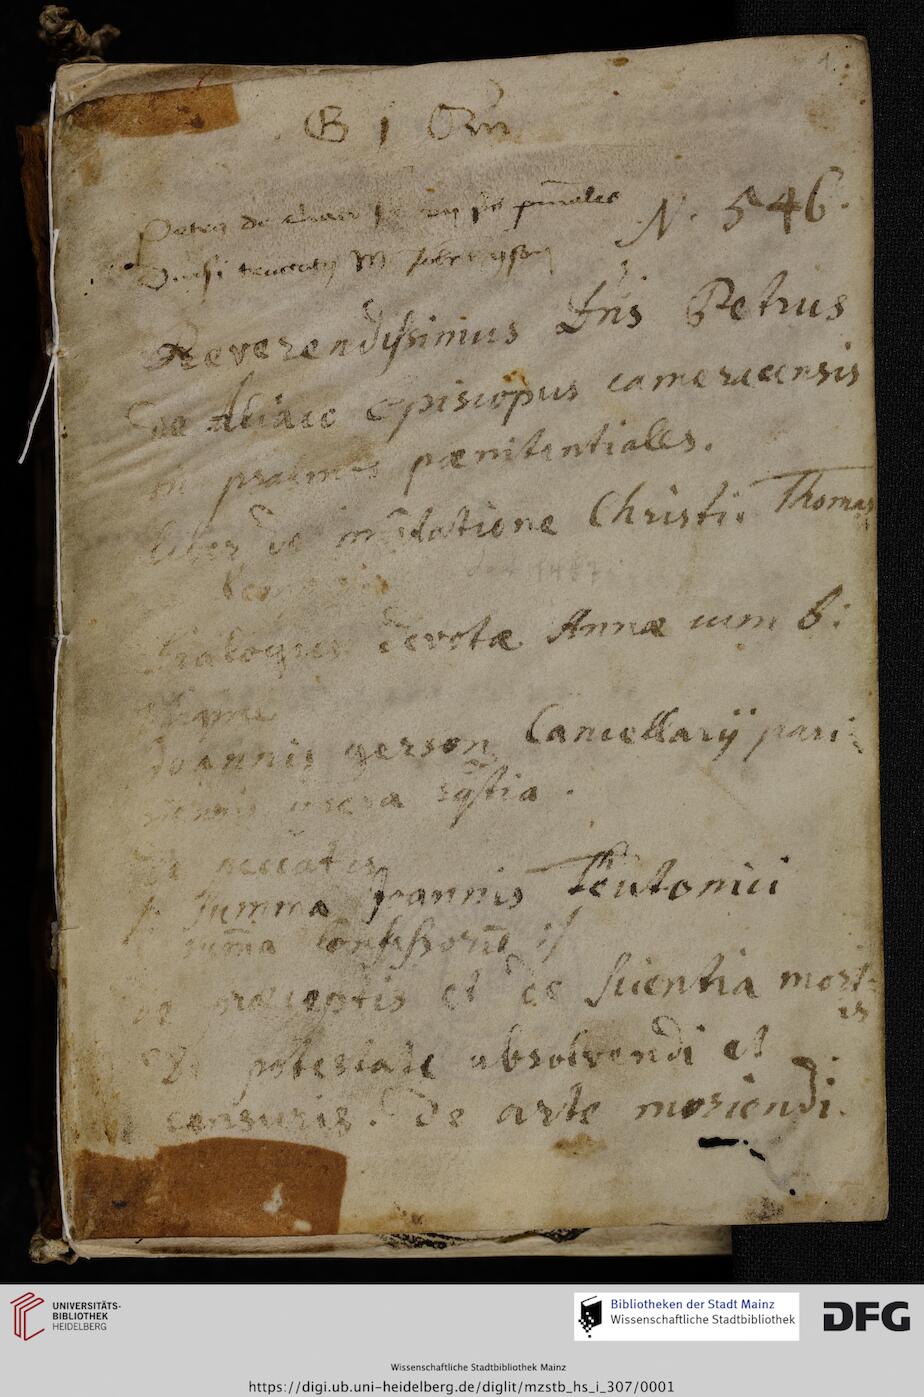 1.
G 1
Petrus de
N. 546.
Reverendissimus Dn̄s Petrus
De Aliaco Episcopus cameracensis
in psalmos pœnitentiales.
liber de imitatione Christi. Thomas
1487
Dialogus devotæ Annæ cum b:
Virgine
Joannis gerson Cancellarij pari:
siensis opera
De peccatis
Summa Joannis Teutonici
sum̄a Confessorū :/
De præceptis et de scientia mort:
is
De potestate absolvendi et
censuris. De arte moriendi.
UNIVERSITÄTS-
BIBLIOTHEK
HEIDELBERG
Bibliotheken der Stadt Mainz
Wissenschaftliche Stadtbibliothek
DFG
Wissenschaftliche Stadtbibliothek Mainz
https://digi.ub.uni-heidelberg.de/diglit/mzstb_hs_i_307/0001